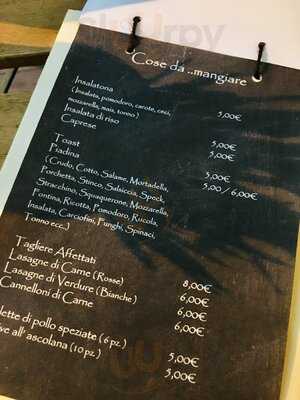 Cose da ..mangiare
Insalatona
(Insalata, pomodoro, carote, ceci,
mozzarella, mais, tonno) 5,00€
Insalata di riso 5,00€
Caprese 5,00€
Toast 5,00€
Piadina 5,00/6,00€
(Crudo, Cotto, Salame, Mortadella,
Porchetta, Stinco, Salsiccia, Speck,
Stracchino, Squaquerone, Mozzarella,
Fontina, Ricotta, Pomodoro, Rucola,
Insalata, Carciofini, Funghi, Spinaci,
Tonno ecc.)
Tagliere Affettati 8,00€
Lasagne di Carne (Rosse) 6,00€
Lasagne di Verdure (Bianche) 6,00€
Cannelloni di Carne 6,00€
lette di pollo speziate (6 pz.) 5,00€
ve all' ascolana (10 pz.) 5,00€